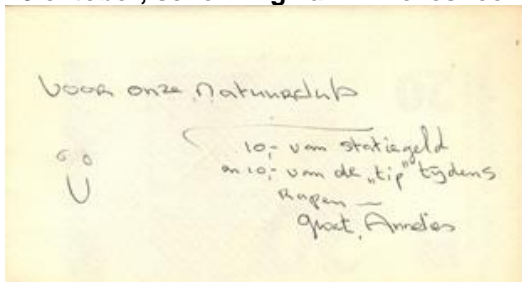 voor onze natuurclub
10,- van statiegeld
en 10,- van de „tip" tijdens
Rapen —
groet, Annelies